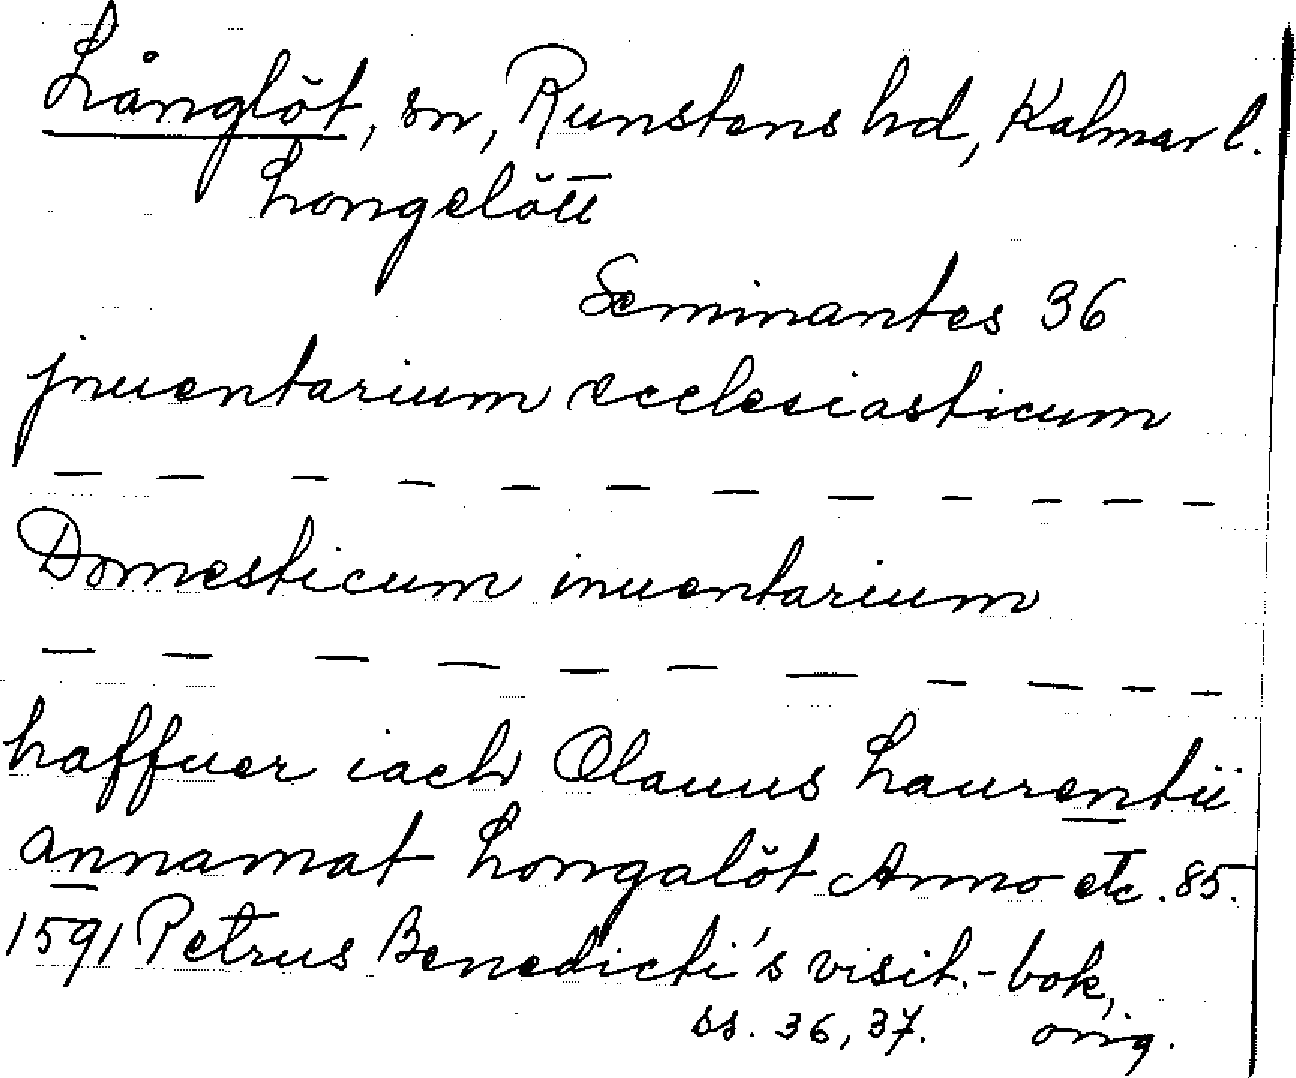 Långlöt, sn, Runstens hd, Kalmar l.
Longelött
Seminantes 36
jnuentarium ecclesiasticum
— — — — — — — — — — — —
Domesticum inuentarium
— — — — — — — — — — —
haffuer iach Olauus Laurentii
annamat Longalöt Anno etc. 85.
1591 Petrus Benedicti's visit.-bok,
ss. 36, 37. orig.